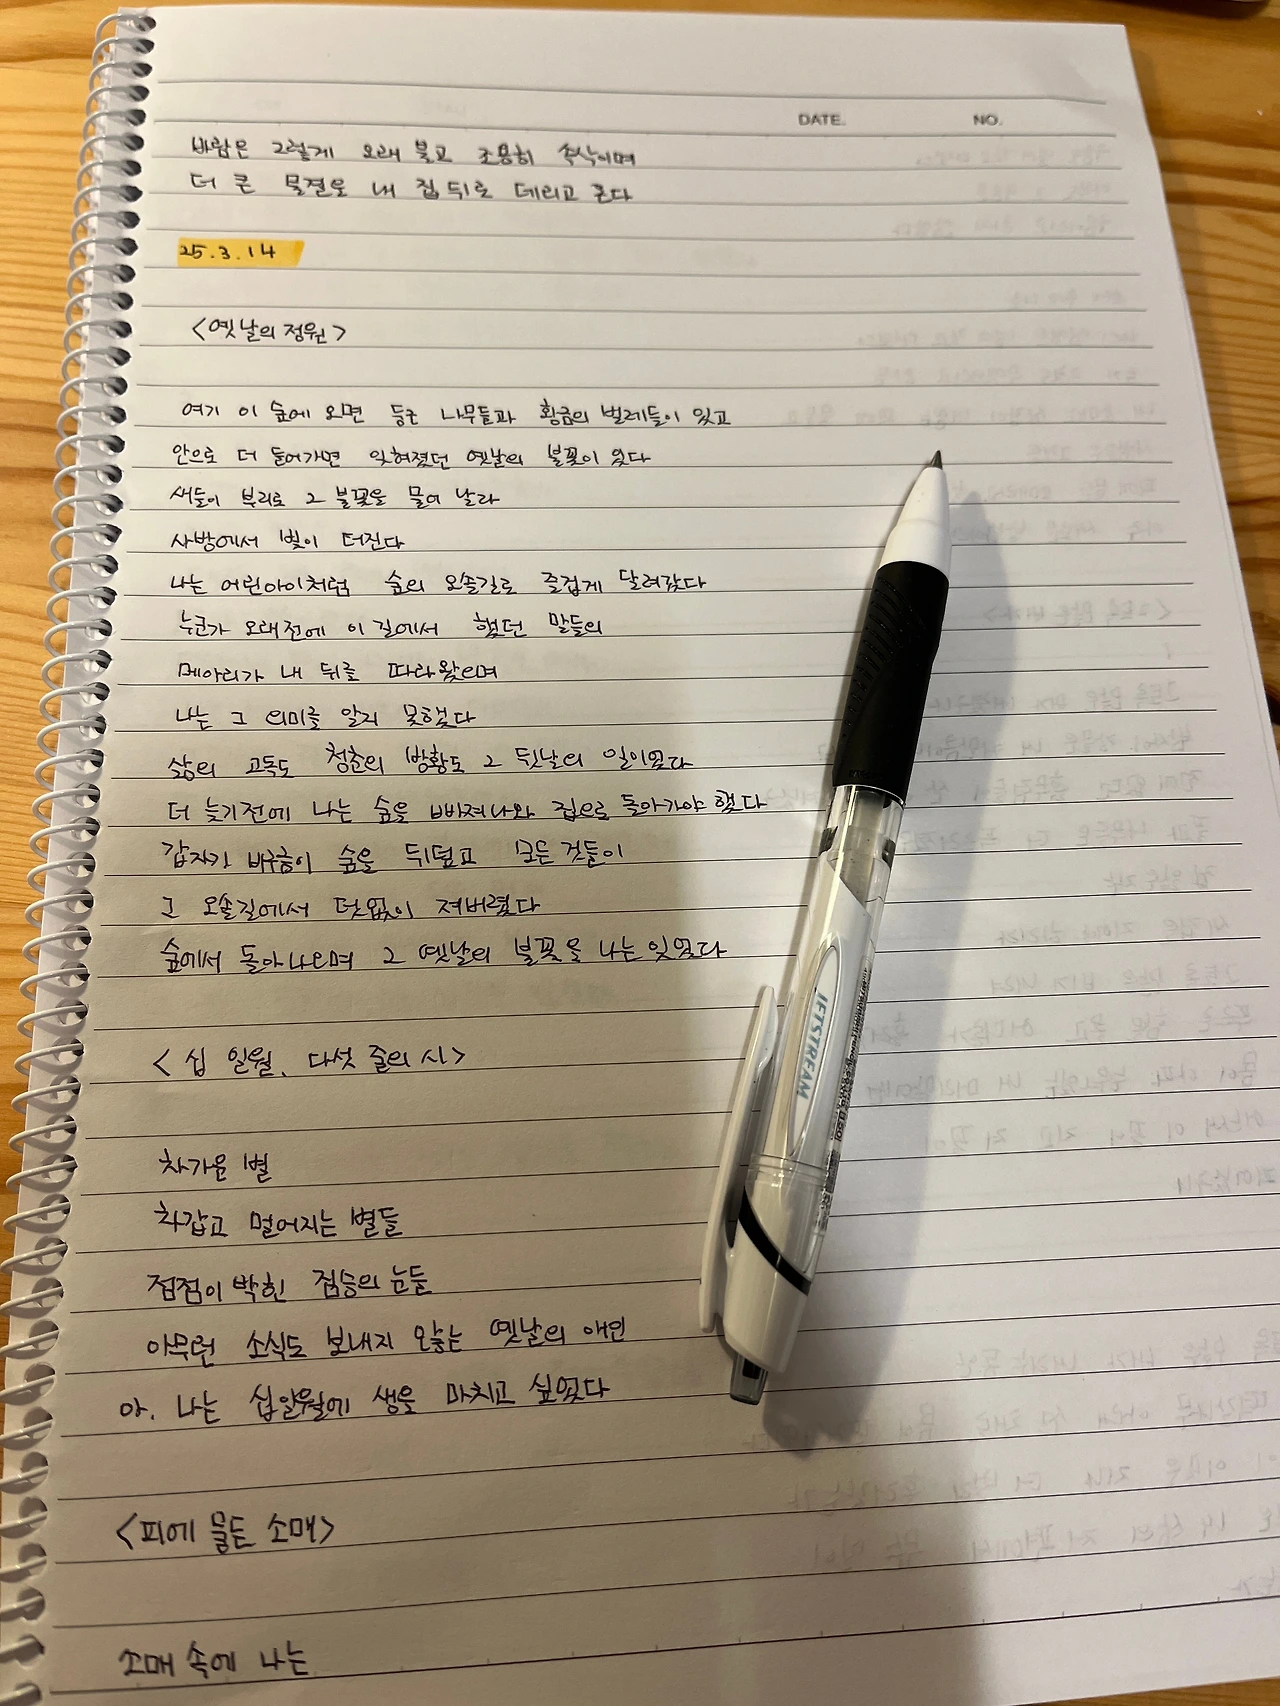 DATE. NO.
바람은 그렇게 오래 불고 조용히 속삭이며
더 큰 물결을 내 집 뒤로 데리고 온다
25.3.14
<옛날의 정원>
여기 이 숲에 오면 둥근 나무들과 황금의 벌레들이 있고
안으로 더 들어가면 잊혀졌던 옛날의 불꽃이 있다
새들이 부리로 그 불꽃을 물어 날라
사방에서 빛이 터진다
나는 어린아이처럼 숲의 오솔길로 즐겁게 달려갔다
누군가 오래전에 이 길에서 했던 말들의
메아리가 내 뒤를 따라왔으며
나는 그 의미를 알지 못했다
삶의 고독도 청춘의 방황도 그 뒷날의 일이었다
더 늦기전에 나는 숲을 빠져나와 집으로 돌아가야 했다
갑자기 바람이 숲을 뒤덮고 모든 것들이
그 오솔길에서 덧없이 져버렸다
숲에서 돌아나오며 그 옛날의 불꽃을 나는 잊었다
<십 일월, 다섯 줄의 시>
차가운 별
차갑고 멀어지는 별들
점점이 박힌 짐승의 눈들
아무런 소식도 보내지 않는 옛날의 애인
아. 나는 십일월에 생을 마치고 싶었다
<피에 물든 소매>
소매 속에 나는
JETSTREAM